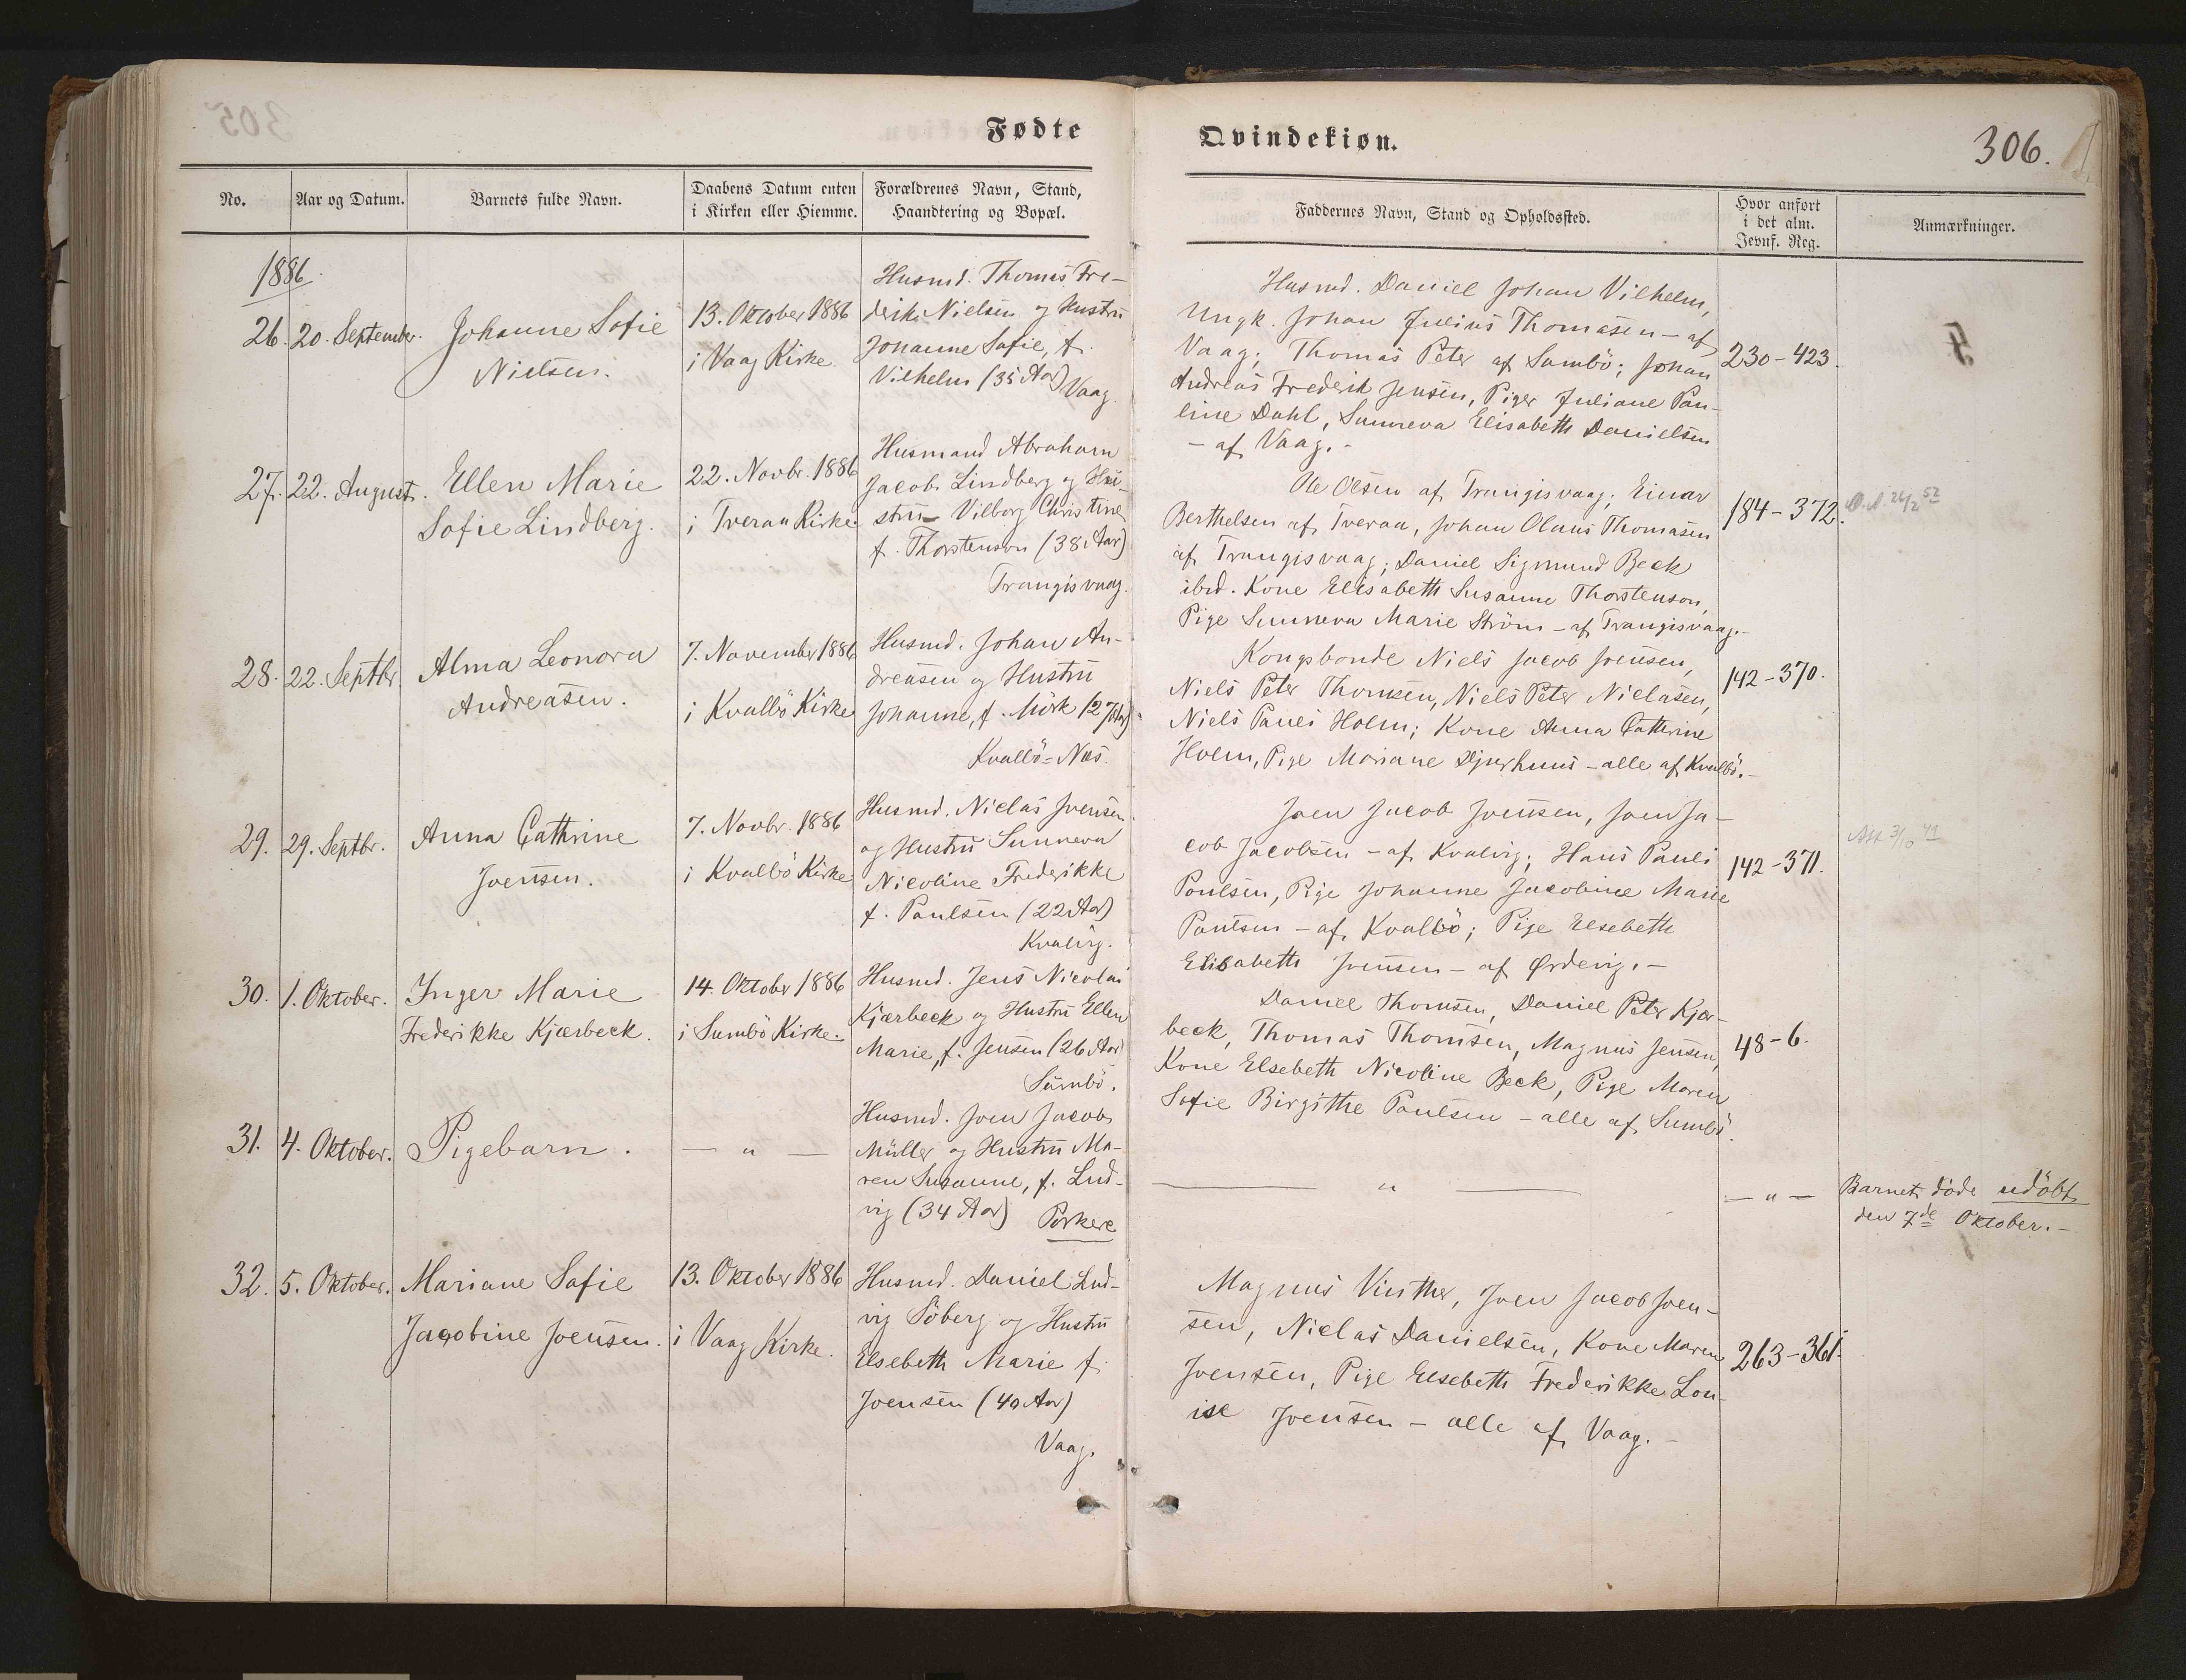 Fødte
Qvindekiøn.
306.
No.
Aar og Datum.
Barnets fulde Navn.
Daabens Datum enten
i Kirken eller Hiemme.
Forældrenes Navn, Stand,
Haandtering og Bopæl.
Faddernes Navn, Stand og Opholdssted.
Hvor anført
i det alm.
Jevnf. Reg.
Anmærkninger.
1886.
26.
20. September.
Johanne Sofie
Nielsen.
13. Oktober 1886
i Vaag Kirke.
Husmd. Thomas Fre-
derik Nielsen og Hustru
Johanne Sofie, f.
Vilhelm (35 Aar)
Vaag.
Husmd. Daniel Johan Vilhelm,
Ungk. Johan Julius Thomasen - af
Vaag; Thomas Peter af Sumbö; Johan
Andreas Frederik Jensen, Piger Juliane Pau-
line Dahl, Sunneva Elisabeth Danielsen
- af Vaag. -
230-423.
27.
22. August.
Ellen Marie
Sofie Lindberg.
22. Novbr. 1886
i Tveraa Kirke.
Husmand Abraham
Jacob Lindberg og Hu-
stru Vilborg Christine
f. Thorstenson (38 Aar)
Trangisvaag.
Ole Olsen af Trangisvaag; Einar
Berthelsen af Tveraa, Johan Olaus Thomasen
af Trangisvaag; Daniel Sigmund Beck
ibid. Kone Elisabeth Susanne Thorstenson,
Pige Sunneva Marie Ström - af Trangisvaag. -
184-372.
D.A. 24/2 52
28.
22. Septbr.
Alma Leonora
Andreasen.
7. November 1886
i Kvalbö Kirke
Husmd. Johan An-
dreasen og Hustru
Johanne, f. Mörk (27 Aar)
Kvalbö=Næs.
Kongsbonde Niels Jacob Joensen,
Niels Peter Thomsen, Niels Peter Niclasen,
Niels Pauli Holm; Kone Anna Cathrine
Holm, Pige Mariane Djurhuus - alle af Kvalbö. -
142-370.
29.
29. Septbr.
Anna Cathrine
Joensen.
7. Novbr. 1886
i Kvalbö Kirke
Husmd. Niclas Joensen
og Hustru Sunneva
Nicoline Frederikke
f. Paulsen (22 Aar)
Kvalvig.
Joen Jacob Joensen, Joen Ja-
cob Jacobsen - af Kvalvig; Hans Pauli
Poulsen, Pige Johanne Jacobine Marie
Poulsen - af Kvalbö; Pige Elsebeth
Elisabeth Joensen - af Ørdevig. -
142-371.
Att 3/10 41
30.
1. Oktober.
Inger Marie
Frederikke Kjærbeck.
14. Oktober 1886
i Sumbö Kirke.
Husmd. Jens Nicolai
Kjærbeck og Hustru Ellen
Marie, f. Jensen (26 Aar)
Sumbö.
Daniel Thomsen, Daniel Peter Kjær-
beck, Thomas Thomsen, Magnus Jensen,
Kone Elsebeth Nicoline Beck, Pige Maren
Sofie Birgithe Poulsen - alle af Sumbö.
48-6.
31.
4. Oktober.
Pigebarn.
— " —
Husmd. Joen Jacob
Müller og Hustru Ma-
ren Susanne, f. Lud-
vig (34 Aar)
Porkere
— " —
— " —
Barnet døde udöbt
den 7de Oktober. -
32.
5. Oktober.
Mariane Sofie
Jacobine Joensen.
13. Oktober 1886
i Vaag Kirke.
Husmd. Daniel Lud-
vig Söberg og Hustru
Elsebeth Marie f.
Joensen (40 Aar)
Vaag.
Magnus Vinther, Joen Jacob Joen-
sen, Niclas Danielsen, Kone Maren
Joensen, Pige Elsebeth Frederikke Lou-
ise Joensen - alle af Vaag. -
263-361.